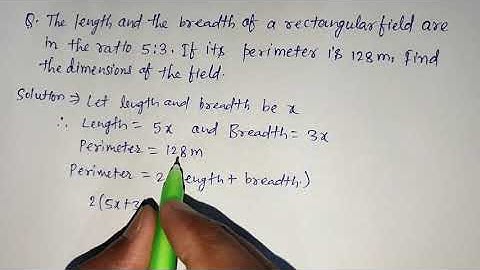 Q. The length and the breadth of a rectangular field are
in the ratio 5:3. If its perimeter is 128m, find
the dimensions of the field.
Solution ⇒ Let length and breadth be x
∴ Length = 5x and Breadth = 3x
Perimeter = 128m
Perimeter = 2 length + breadth.)
2(5x+3